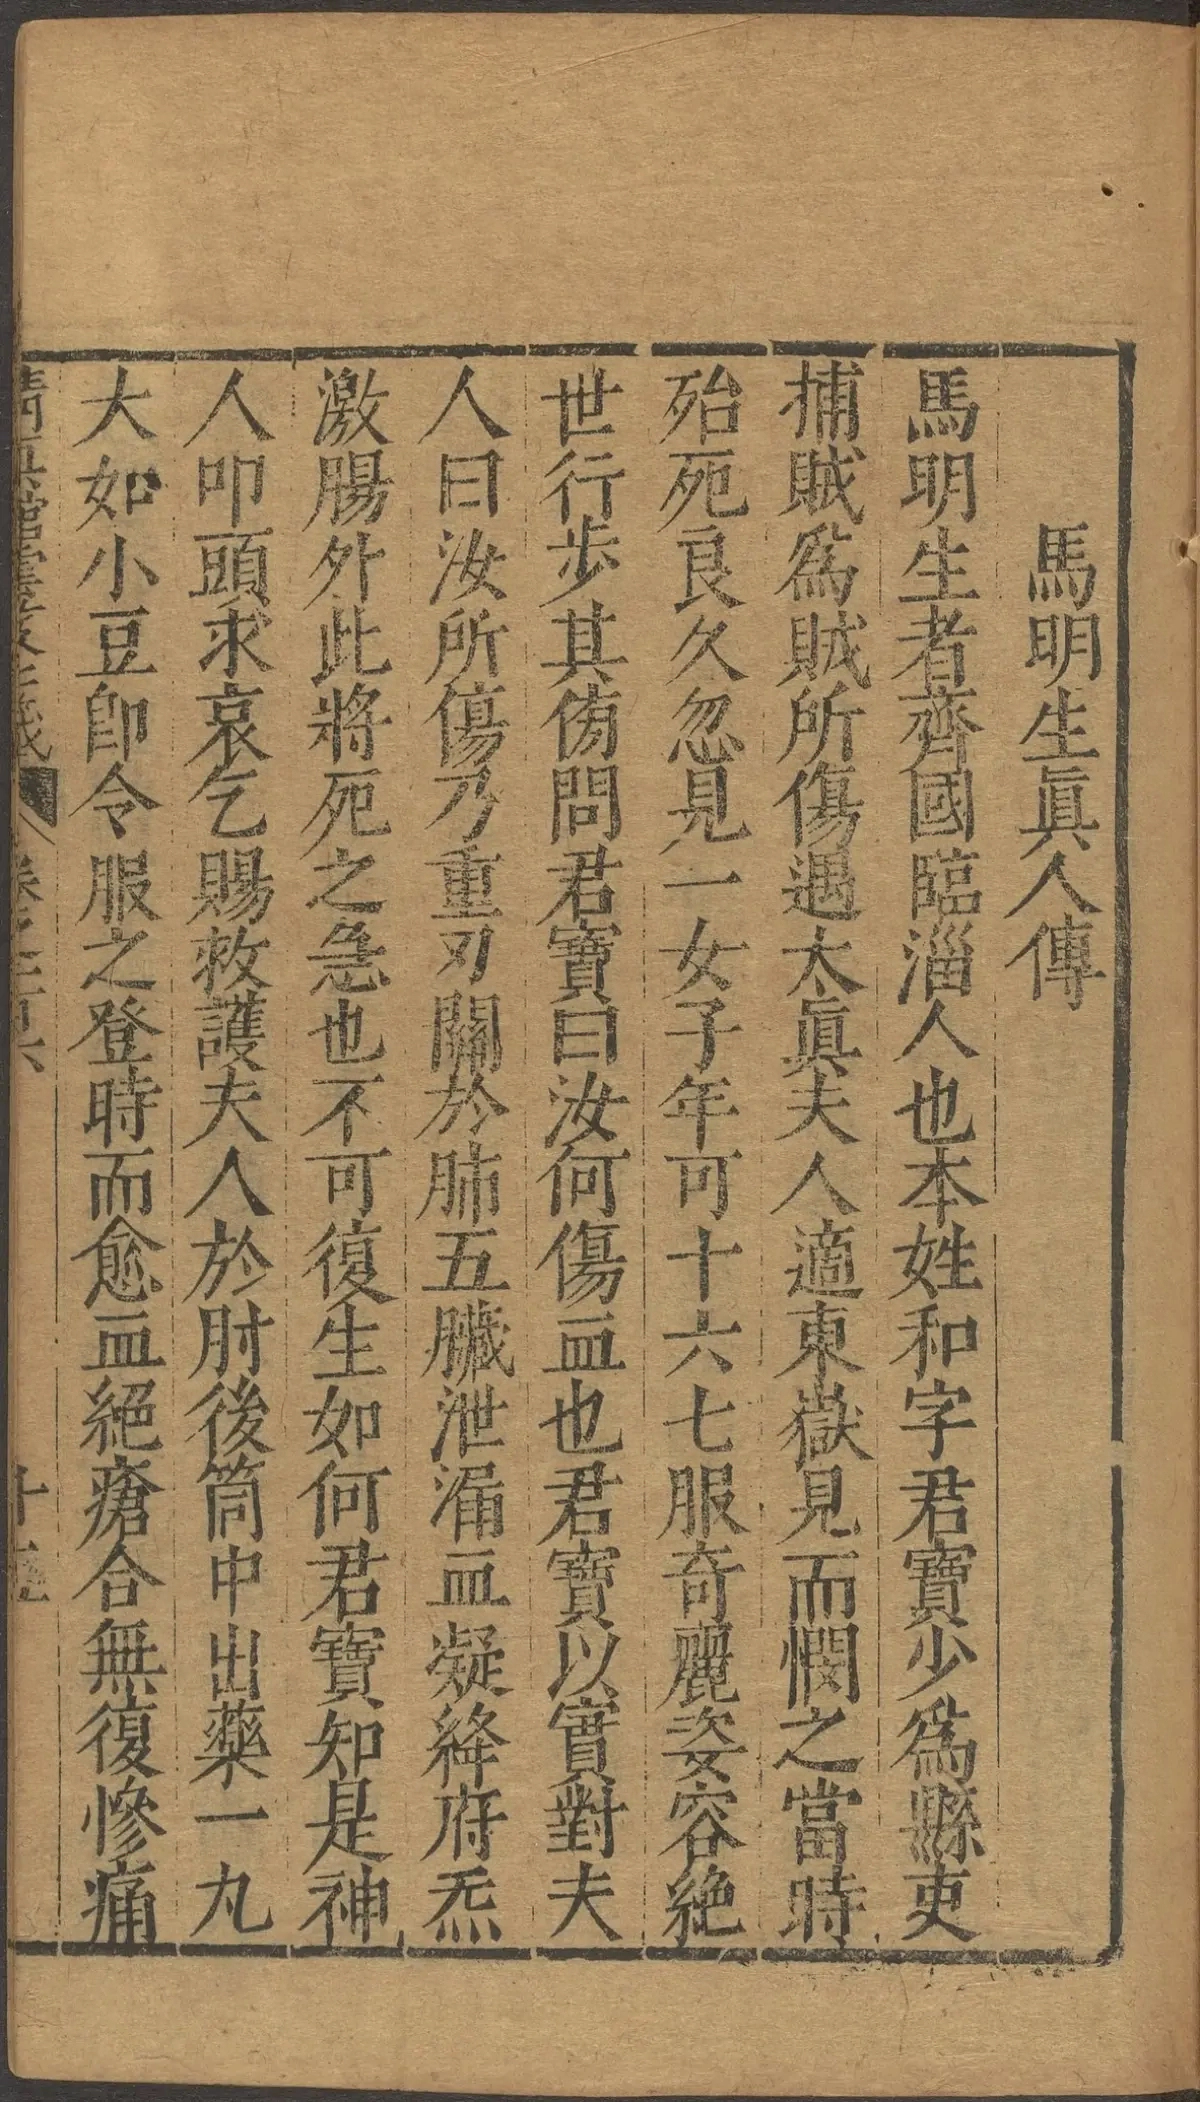 馬明生眞人傳
馬明生者齊國臨淄人也本姓和字君寶少爲縣吏
捕賊爲賊所傷遇太眞夫人適東嶽見而憫之當時
殆死良久忽見一女子年可十六七服奇麗姿容絶
世行步其傍問君寶曰汝何傷血也君寶以實對夫
人曰汝所傷乃重刃關於肺五臟泄漏血凝絳府炁
激腸外此將死之急也不可復生如何君寶知是神
人叩頭求哀乞賜救護夫人於肘後筒中出藥一丸
大如小豆卽令服之登時而愈血絕瘡合無復慘痛